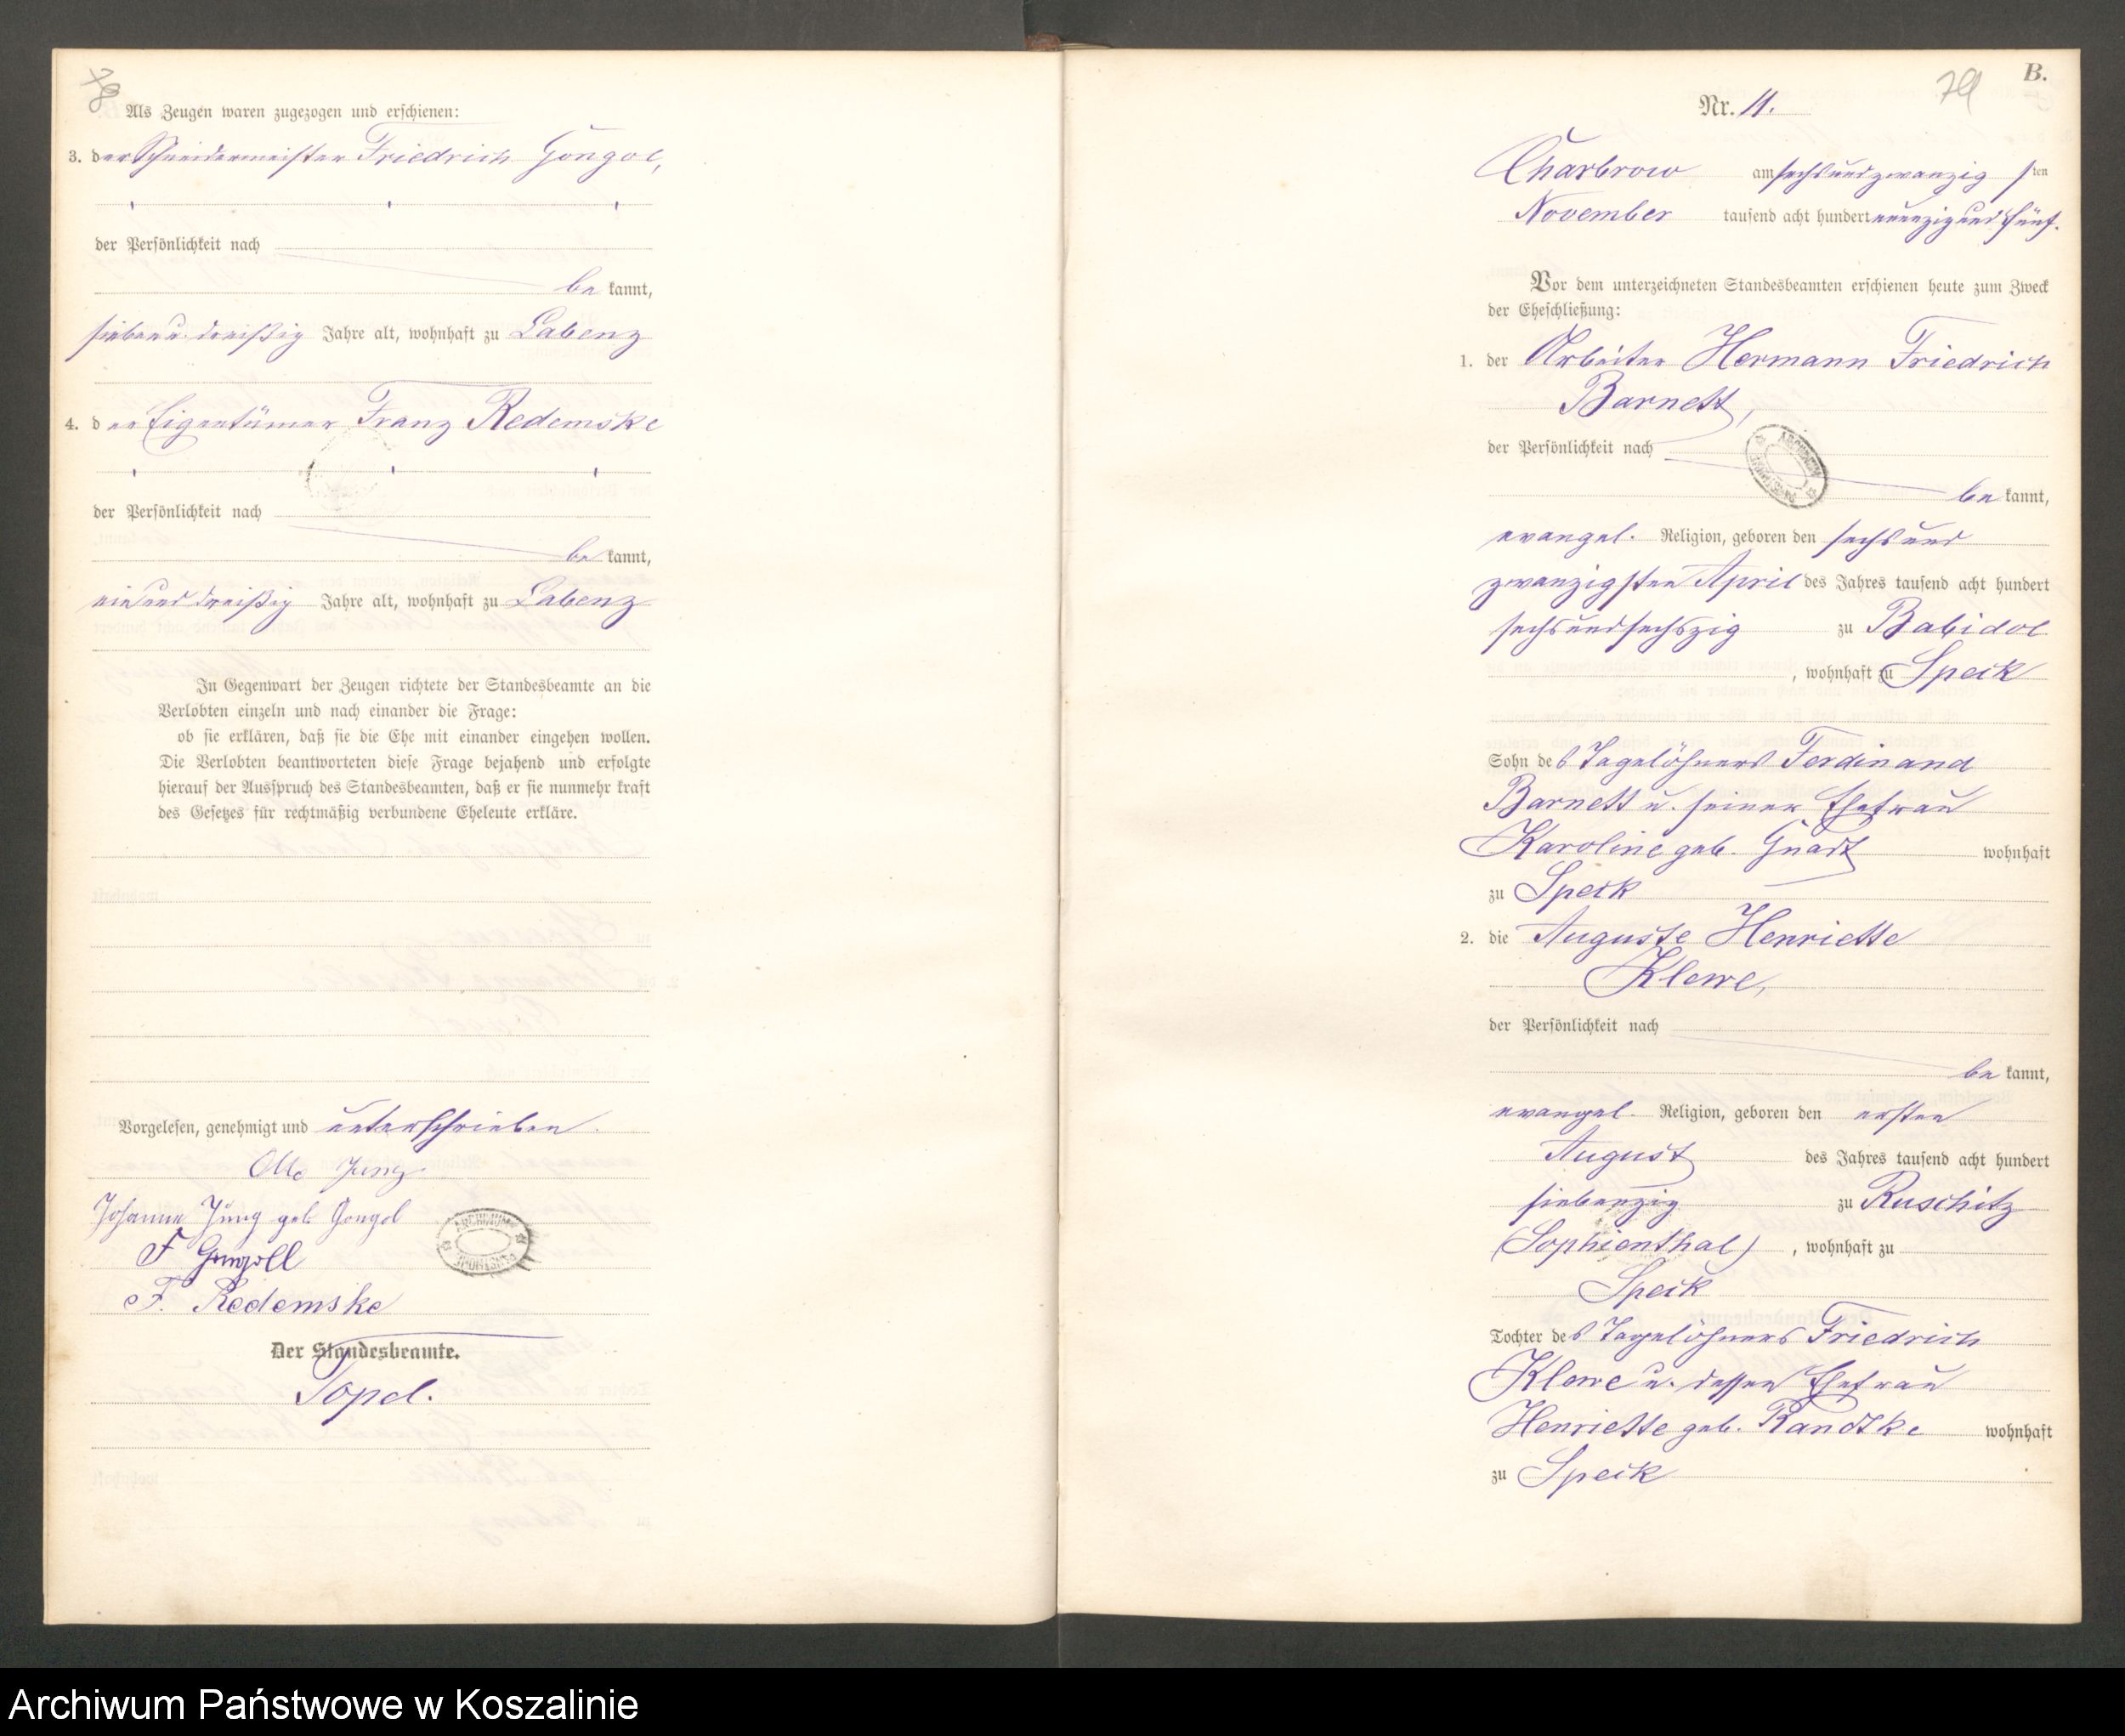 78
Als Zeugen waren zugezogen und erschienen:
3. der Schneidermeister Friedrich Gongol,
der Persönlichkeit nach
be kannt,
siebenu. dreißig Jahre alt, wohnhaft zu Labenz
4. der Eigentümer Franz Redemske
der Persönlichkeit nach
be kannt,
einund dreißig Jahre alt, wohnhaft zu Labenz
In Gegenwart der Zeugen richtete der Standesbeamte an die
Verlobten einzeln und nach einander die Frage:
ob sie erklären, daß sie die Ehe mit einander eingehen wollen.
Die Verlobten beantworteten diese Frage bejahend und erfolgte
hierauf der Ausspruch des Standesbeamten, daß er sie nunmehr kraft
des Gesetzes für rechtmäßig verbundene Eheleute erkläre.
Vorgelesen, genehmigt und unterschrieben.
Otto Jung
Johanne Jung geb Gongol
F Gongoll
F. Redemske
Der Standesbeamte.
Topel.
79
B.
Nr. 11.
Charbrow am sechsundzwanzig sten
November tausend acht hundert neunzig und fünf.
Vor dem unterzeichneten Standesbeamten erschienen heute zum Zweck
der Eheschließung:
1. der Arbeiter Hermann Friedrich
Barnett,
der Persönlichkeit nach
be kannt,
evangel. Religion, geboren den sechsund
zwanzigsten April des Jahres tausend acht hundert
sechsundsechszig zu Babidol
, wohnhaft zu Speck
Sohn des Tagelöhners Ferdinand
Barnett u. seiner Ehefrau
Karoline geb. Gnadt wohnhaft
zu Speck
2. die Auguste Henriette
Klewe,
der Persönlichkeit nach
be kannt,
evangel. Religion, geboren den ersten
August des Jahres tausend acht hundert
siebenzig zu Ruschitz
(Sophienthal) , wohnhaft zu
Speck
Tochter des Tagelöhners Friedrich
Klewe u. dessen Ehefrau
Henriette geb. Randtke wohnhaft
zu Speck
Archiwum Państwowe w Koszalinie